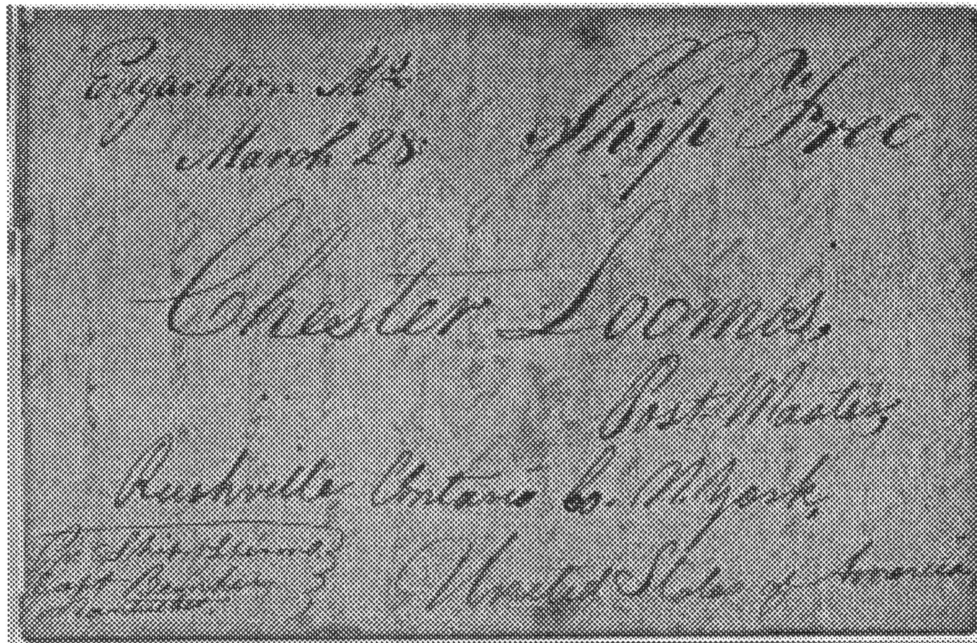 Edgartown Ms
March 28
Ship Free
Chester Loomis,
Post Master,
Rushville Ontario Co. N. York,
United States of America
Pr. Ship
Capt
Nantucket